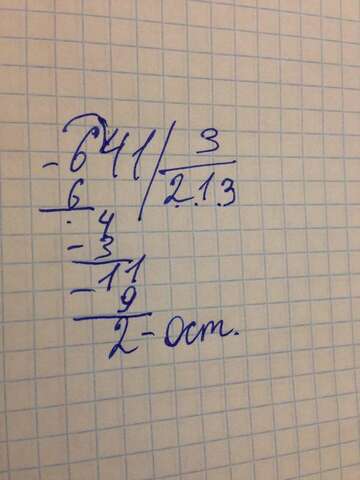 - 641 / 3
6 213
4
- 3
- 11
9
2 - Ост.